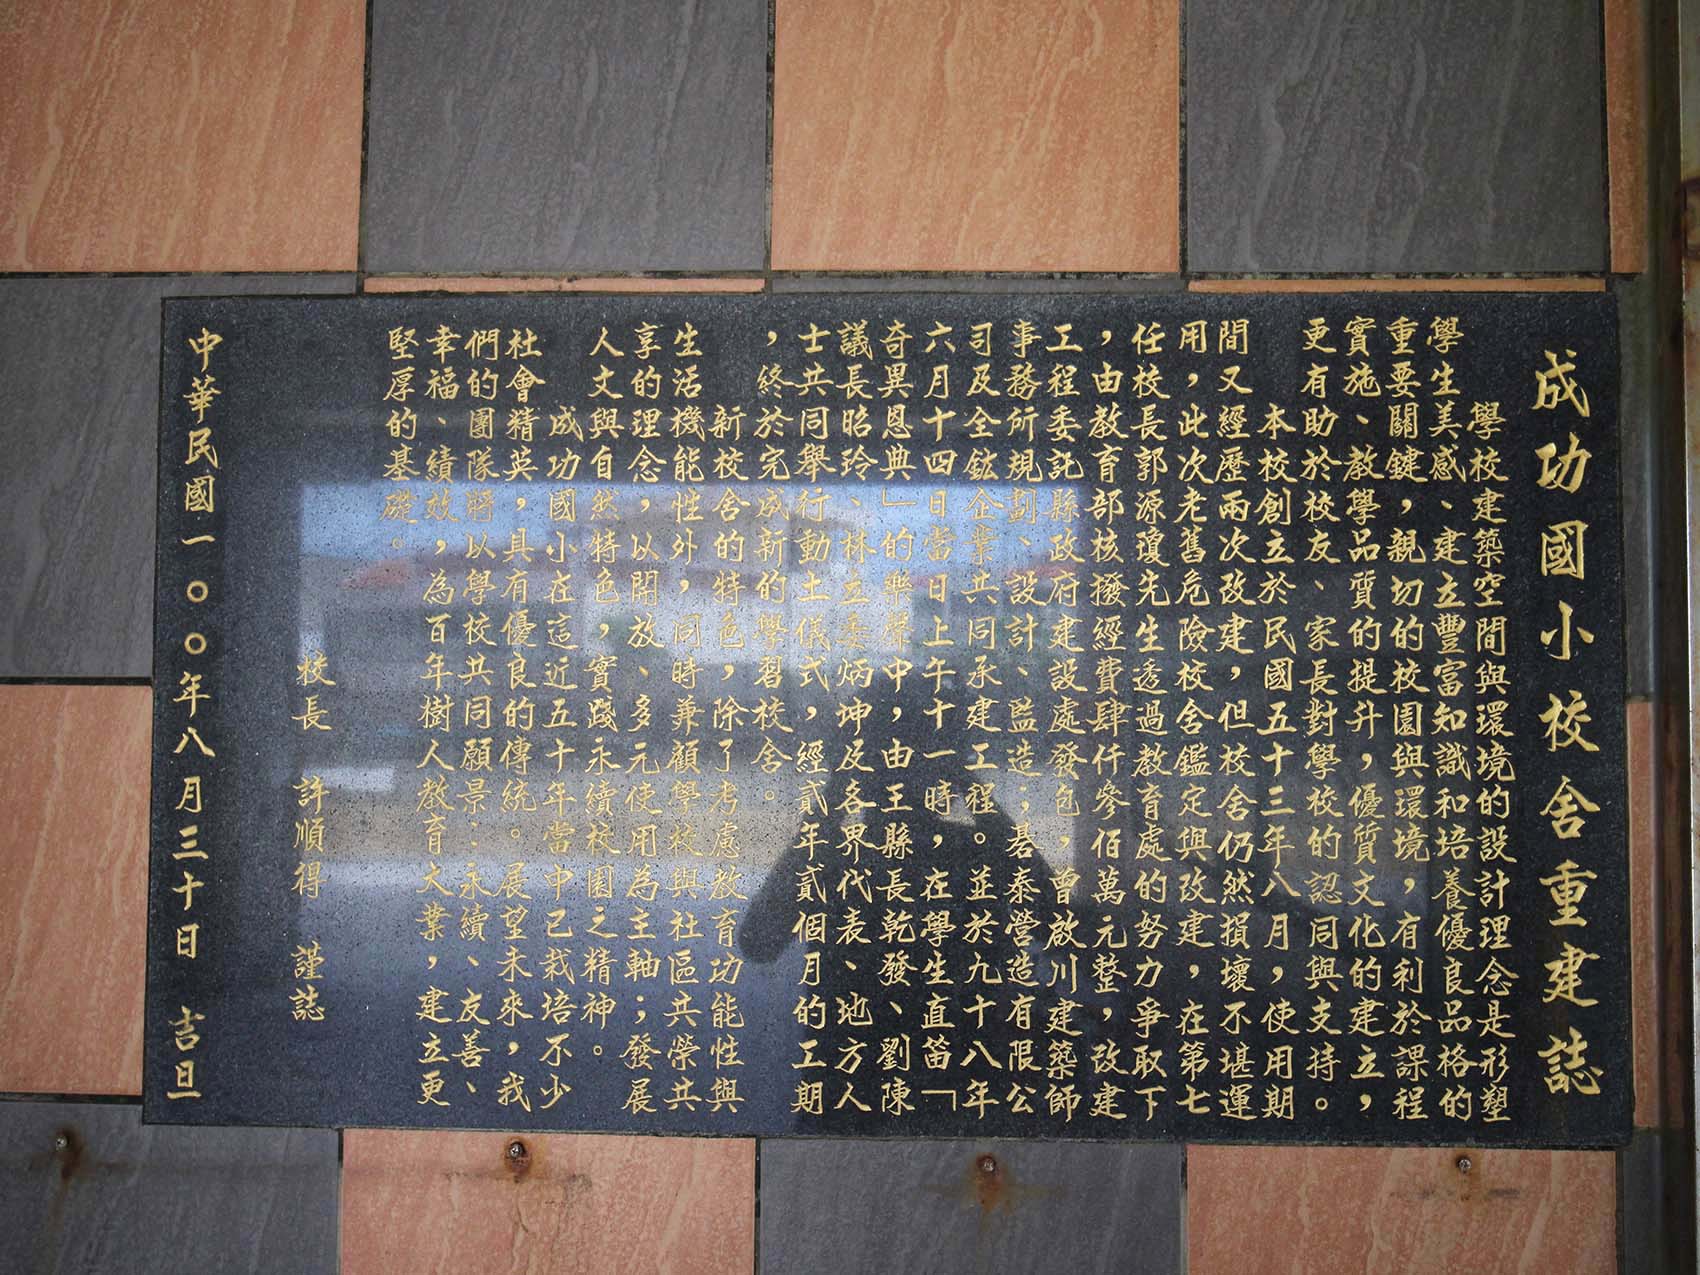 成功國小校舍重建誌
學校建築空間與環境的設計理念是形塑
學生美感、建立豐富知識和培養優良品格的
重要關鍵，親切的校園與環境，有利於課程
實施、教學品質的提升，優質文化的建立，
更有助於校友、家長對學校的認同與支持。
本校創立於民國五十三年八月，使用期
間又經歷兩次改建，但校舍仍然損壞不堪運
用，此次老舊危險校舍鑑定與改建，在第七
任校長郭源瓊先生透過教育處的努力爭取下
，由教育部核撥經費肆仟參佰萬元整，改建
工程委託縣政府建設處發包，曾啟川建築師
事務所規劃、設計、監造；碁泰營造有限公
司及全鋐企業共同承建工程。並於九十八年
六月十四日當日上午十一時，在學生直笛「
奇異恩典」的樂聲中，由王縣長乾發、劉陳
議長昭玲、林立委炳坤及各界代表、地方人
士共同舉行動土儀式，經貳年貳個月的工期
，終於完成新的學習校舍。
新校舍的特色，除了考慮教育功能性與
生活機能性外，同時兼顧學校與社區共榮共
享的理念，以開放、多元使用為主軸；發展
人文與自然特色，實踐永續校園之精神。
成功國小在這近五十年當中已栽培不少
社會精英，具有優良的傳統。展望未來，我
們的團隊將以學校共同願景：永續、友善、
幸福、績效，為百年樹人教育大業，建立更
堅厚的基礎。
校長　許順得　謹誌
中華民國一００年八月三十日　吉旦